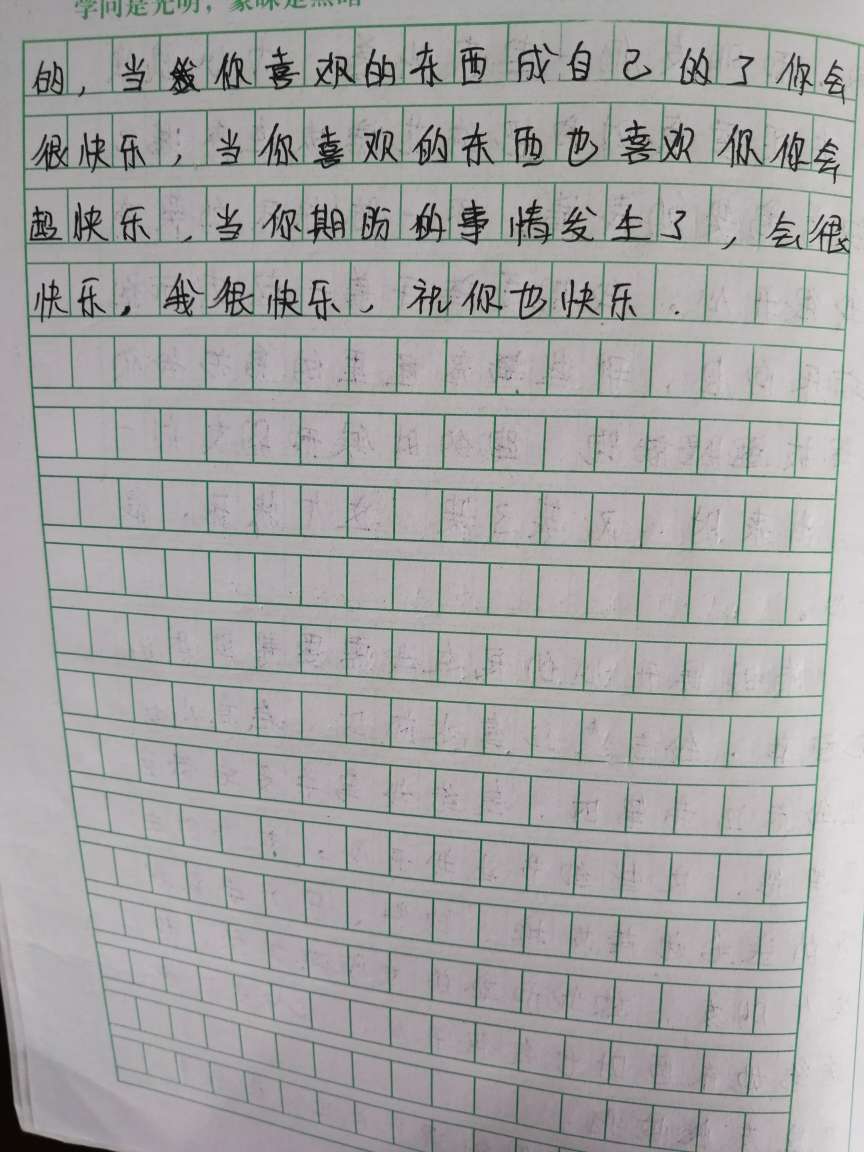 学问是光明，蒙昧是黑暗
的，当你喜欢的东西成自己的了你会
很快乐，当你喜欢的东西也喜欢你你会
超快乐，当你期盼的事情发生了，会很
快乐，我很快乐，祝你也快乐．